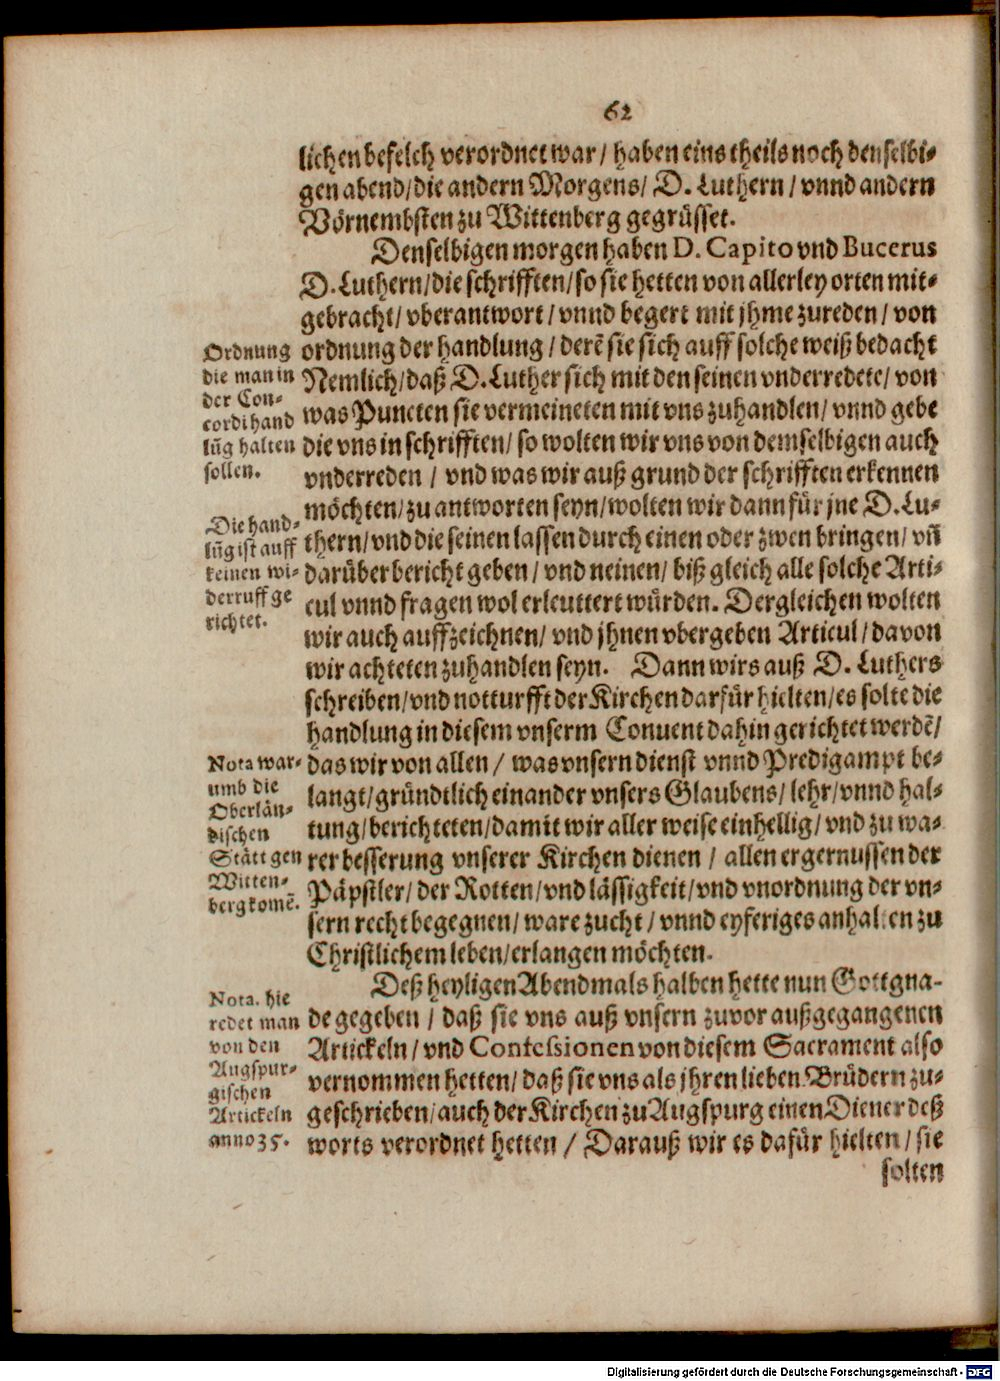 62
lichen befelch verordnet war / haben eins theils noch denselbi-
gen abend/die andern Morgens/ D. Luthern / vnnd andern
Vörnembsten zu Wittenberg gegrüsset.
Denselbigen morgen haben D. Capito vnd Bucerus
D. Luthern/die schrifften/so sie hetten von allerley orten mit-
gebracht/ vberantwort / vnnd begert mit jhme zureden / von
Ordnung
die man in
der Con-
cordi hand
lūg halten
sollen.
ordnung der handlung / derē sie sich auff solche weiß bedacht
Nemlich/daß D. Luther sich mit den seinen vnderredete/ von
was Puncten sie vermeineten mit vns zuhandlen/ vnnd gebe
die vns in schrifften/ so wolten wir vns von demselbigen auch
vnderreden / vnd was wir auß grund der schrifften erkennen
möchten/zu antworten seyn/wolten wir dann für jne D. Lu-
Die hand-
lūg ist auff
keinen wi-
derruff ge
richtet.
thern/vnd die seinen lassen durch einen oder zwen bringen/ vñ
darüber bericht geben / vnd neinen/ biß gleich alle solche Arti-
cul vnnd fragen wol erleuttert würden. Dergleichen wolten
wir auch auffzeichnen/ vnd jhnen vbergeben Articul / davon
wir achteten zuhandlen seyn. Dann wirs auß D. Luthers
schreiben/vnd notturfft der Kirchen darfür hielten/es solte die
handlung in diesem vnserm Conuent dahin gerichtet werdē/
Nota war-
umb die
Oberlän-
dischen
Stätt gen
Witten-
berg komē.
das wir von allen / was vnsern dienst vnnd Predigampt be-
langt/gründtlich einander vnsers Glaubens/ lehr/vnnd hal-
tung/berichteten/damit wir aller weise einhellig/ vnd zu wa-
rer besserung vnserer Kirchen dienen / allen ergernussen der
Päpstler/ der Rotten/vnd lässigkeit/vnd vnordnung der vn-
sern recht begegnen/ ware zucht / vnnd eyferiges anhalten zu
Christlichem leben/erlangen möchten.
Deß heyligen Abendmals halben hette nun Gott gna-
Nota. hie
redet man
von den
Augspur-
gischen
Artickeln
anno 35.
de gegeben / daß sie vns auß vnsern zuvor außgegangenen
Artickeln/ vnd Confessionen von diesem Sacrament also
vernommen hetten/ daß sie vns als jhren lieben Brüdern zu-
geschrieben/auch der Kirchen zu Augspurg einen Diener deß
worts verordnet hetten / Darauß wir es dafür hielten / sie
solten
Digitalisierung gefördert durch die Deutsche Forschungsgemeinschaft - DFG